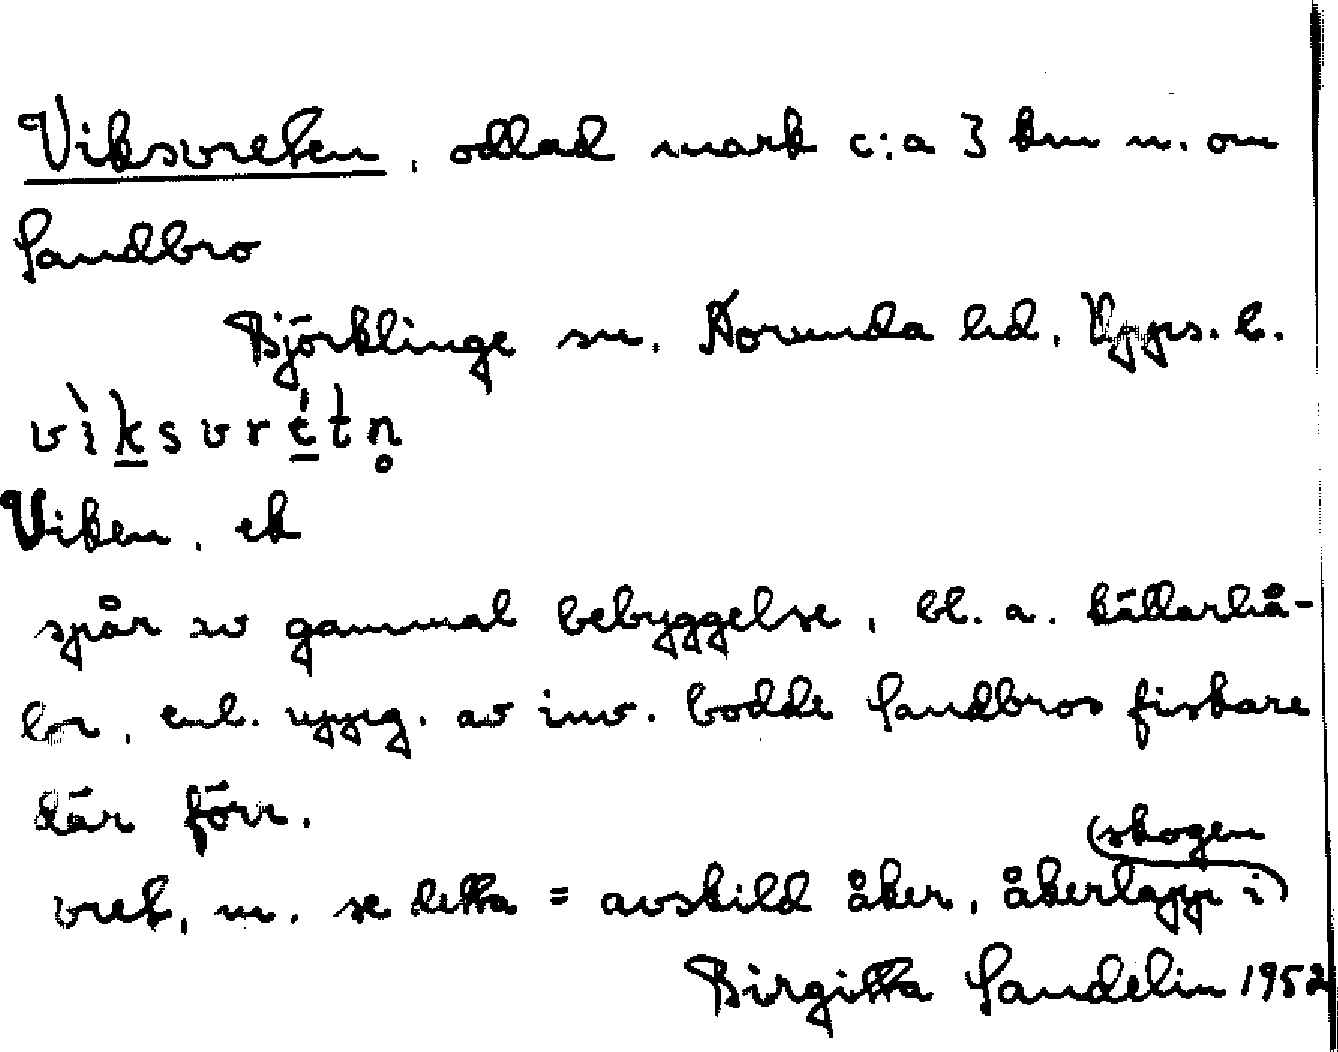 Viksvreten, odlad mark c:a 3 km n. om
Sandbro
Björklinge sn. Norunda hd. Upps. l.
vìksvrétn̥
Viken, ek
spår av gammal bebyggelse, bl. a. källarhå-
lor, enl. uppg. av inv. bodde Sandbros fiskare
där förr.
vret, m. se detta = avskild åker, åkerlapp i skogen
Birgitta Sandelin 1952